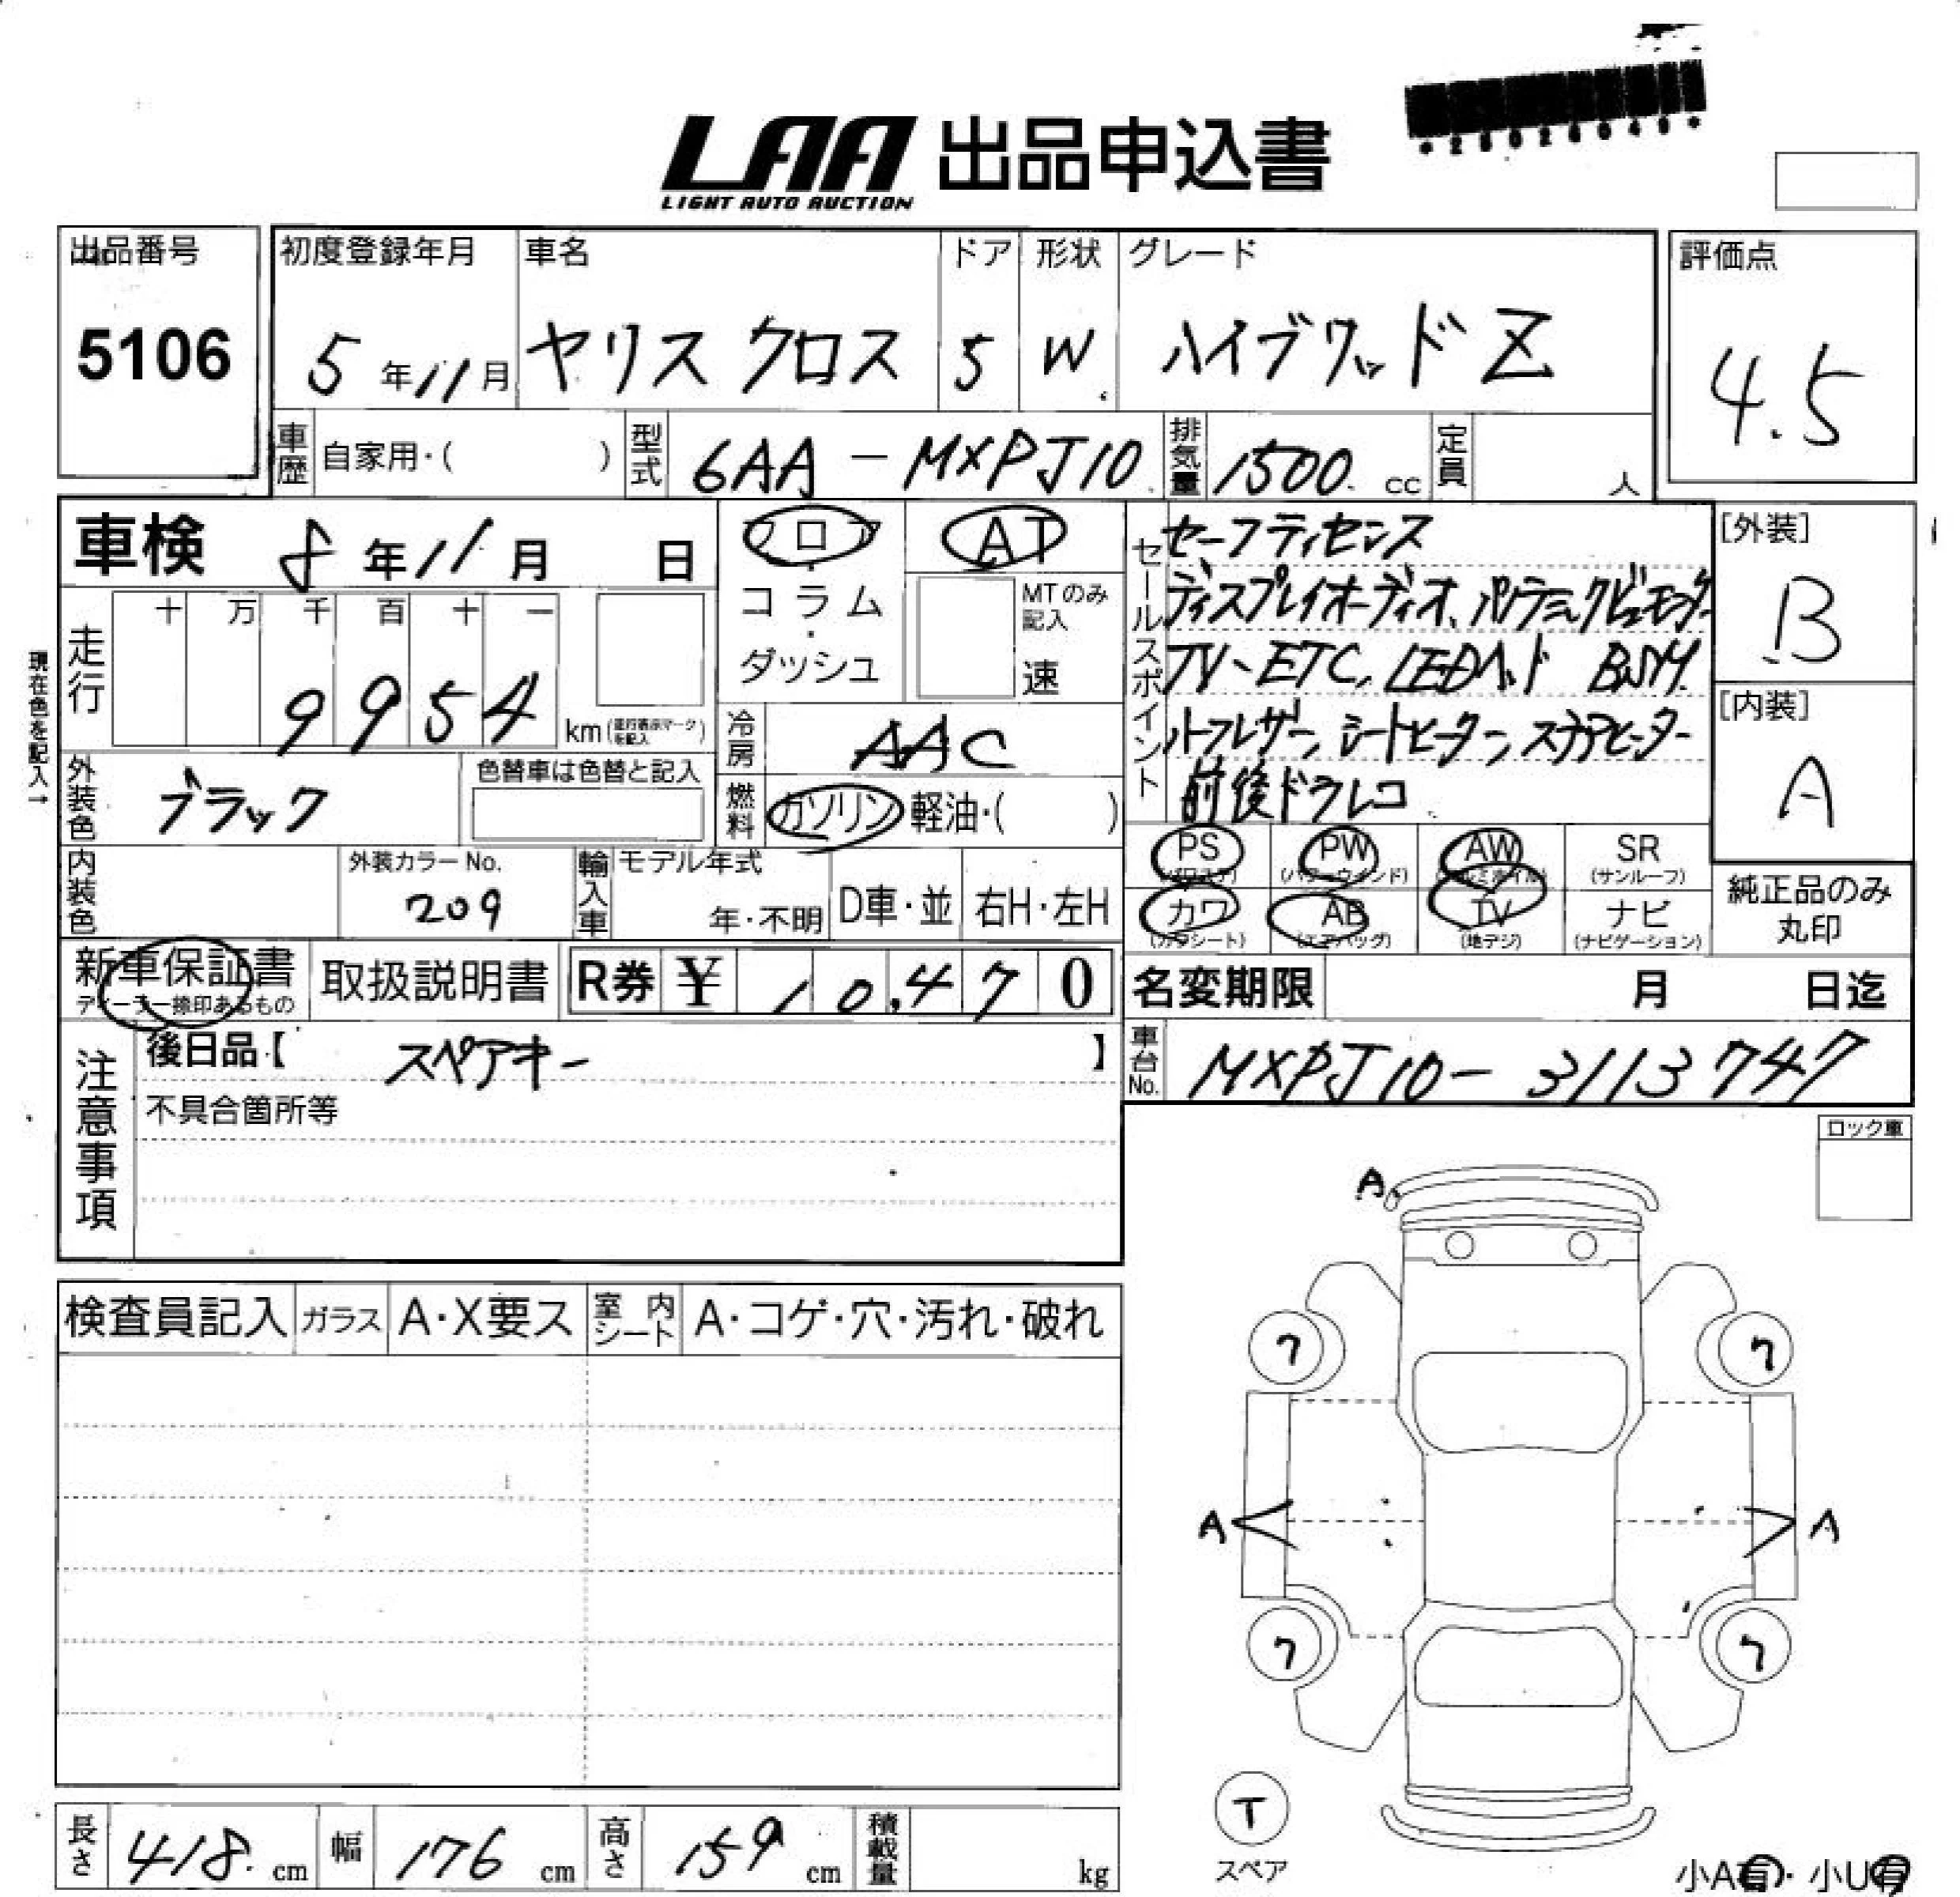 *25026049*
LAA 出品申込書
LIGHT AUTO AUCTION
出品番号
5106
初度登録年月 車名 ドア 形状 グレード
5年11月 ヤリスクロス 5 W ハイブリッド Z
評価点
4.5
車歴 自家用・( ) 型式 6AA-MXPJ10 排気量 1500 cc 定員 人
車検 8年11月 日
フロア・コラム・ダッシュ
AT
MTのみ記入
速
セールスポイント
セーフティセンス
ディスプレイオーディオ、パノラミックビューモニター
TV、ETC、LEDヘッド BSM
ハーフレザー、シートヒーター、ステアヒーター
前後ドラレコ
[外装]
B
[内装]
A
現在色を記入→
走行 十 万 千 百 十 一
9954 km (走行表示マークを記入)
冷房 AAC
燃料 ガソリン 軽油・( )
外装色 ブラック 色替車は色替と記入
内装色 外装カラーNo. 209
輸入車 モデル年式 年・不明 D車・並 右H・左H
PS (パワステ) PW (パワーウインド) AW (アルミホイル) SR (サンルーフ)
カワ (カワシート) AB (エアバッグ) TV (地デジ) ナビ (ナビゲーション)
純正品のみ丸印
新車保証書 ディーラー捺印あるもの 取扱説明書 R券 ¥ 10,470
名変期限 月 日迄
車台No. MXPJ10-3113747
注意事項
後日品【 スペアキー 】
不具合箇所等
ロック車
検査員記入 ガラス A・X要ス 室内シート A・コゲ・穴・汚れ・破れ
A
ワ ワ
A A
ワ ワ
T
スペア
長さ 418 cm 幅 176 cm 高さ 159 cm 積載量 kg
小A有・小U有